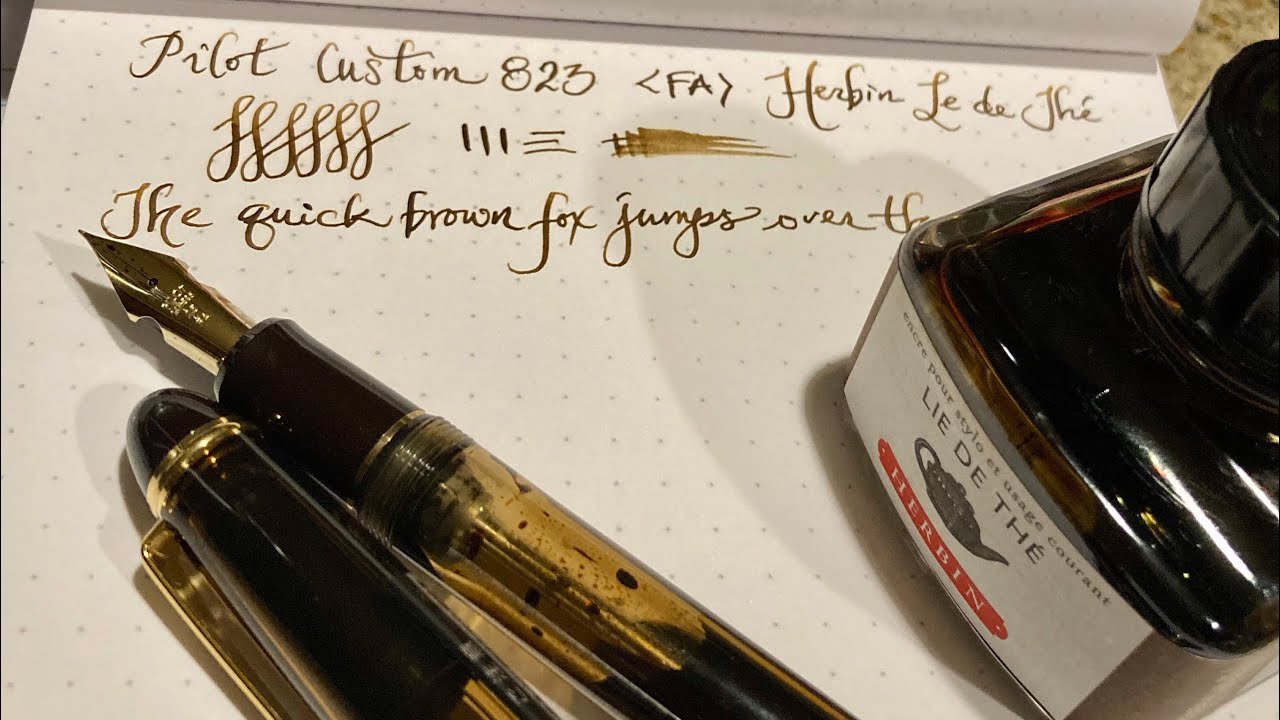 Pilot Custom 823 <FA> Herbin Le de Thé
The quick brown fox jumps over th
encre pour stylo et usage courant
LIE DE THÉ
HERBIN